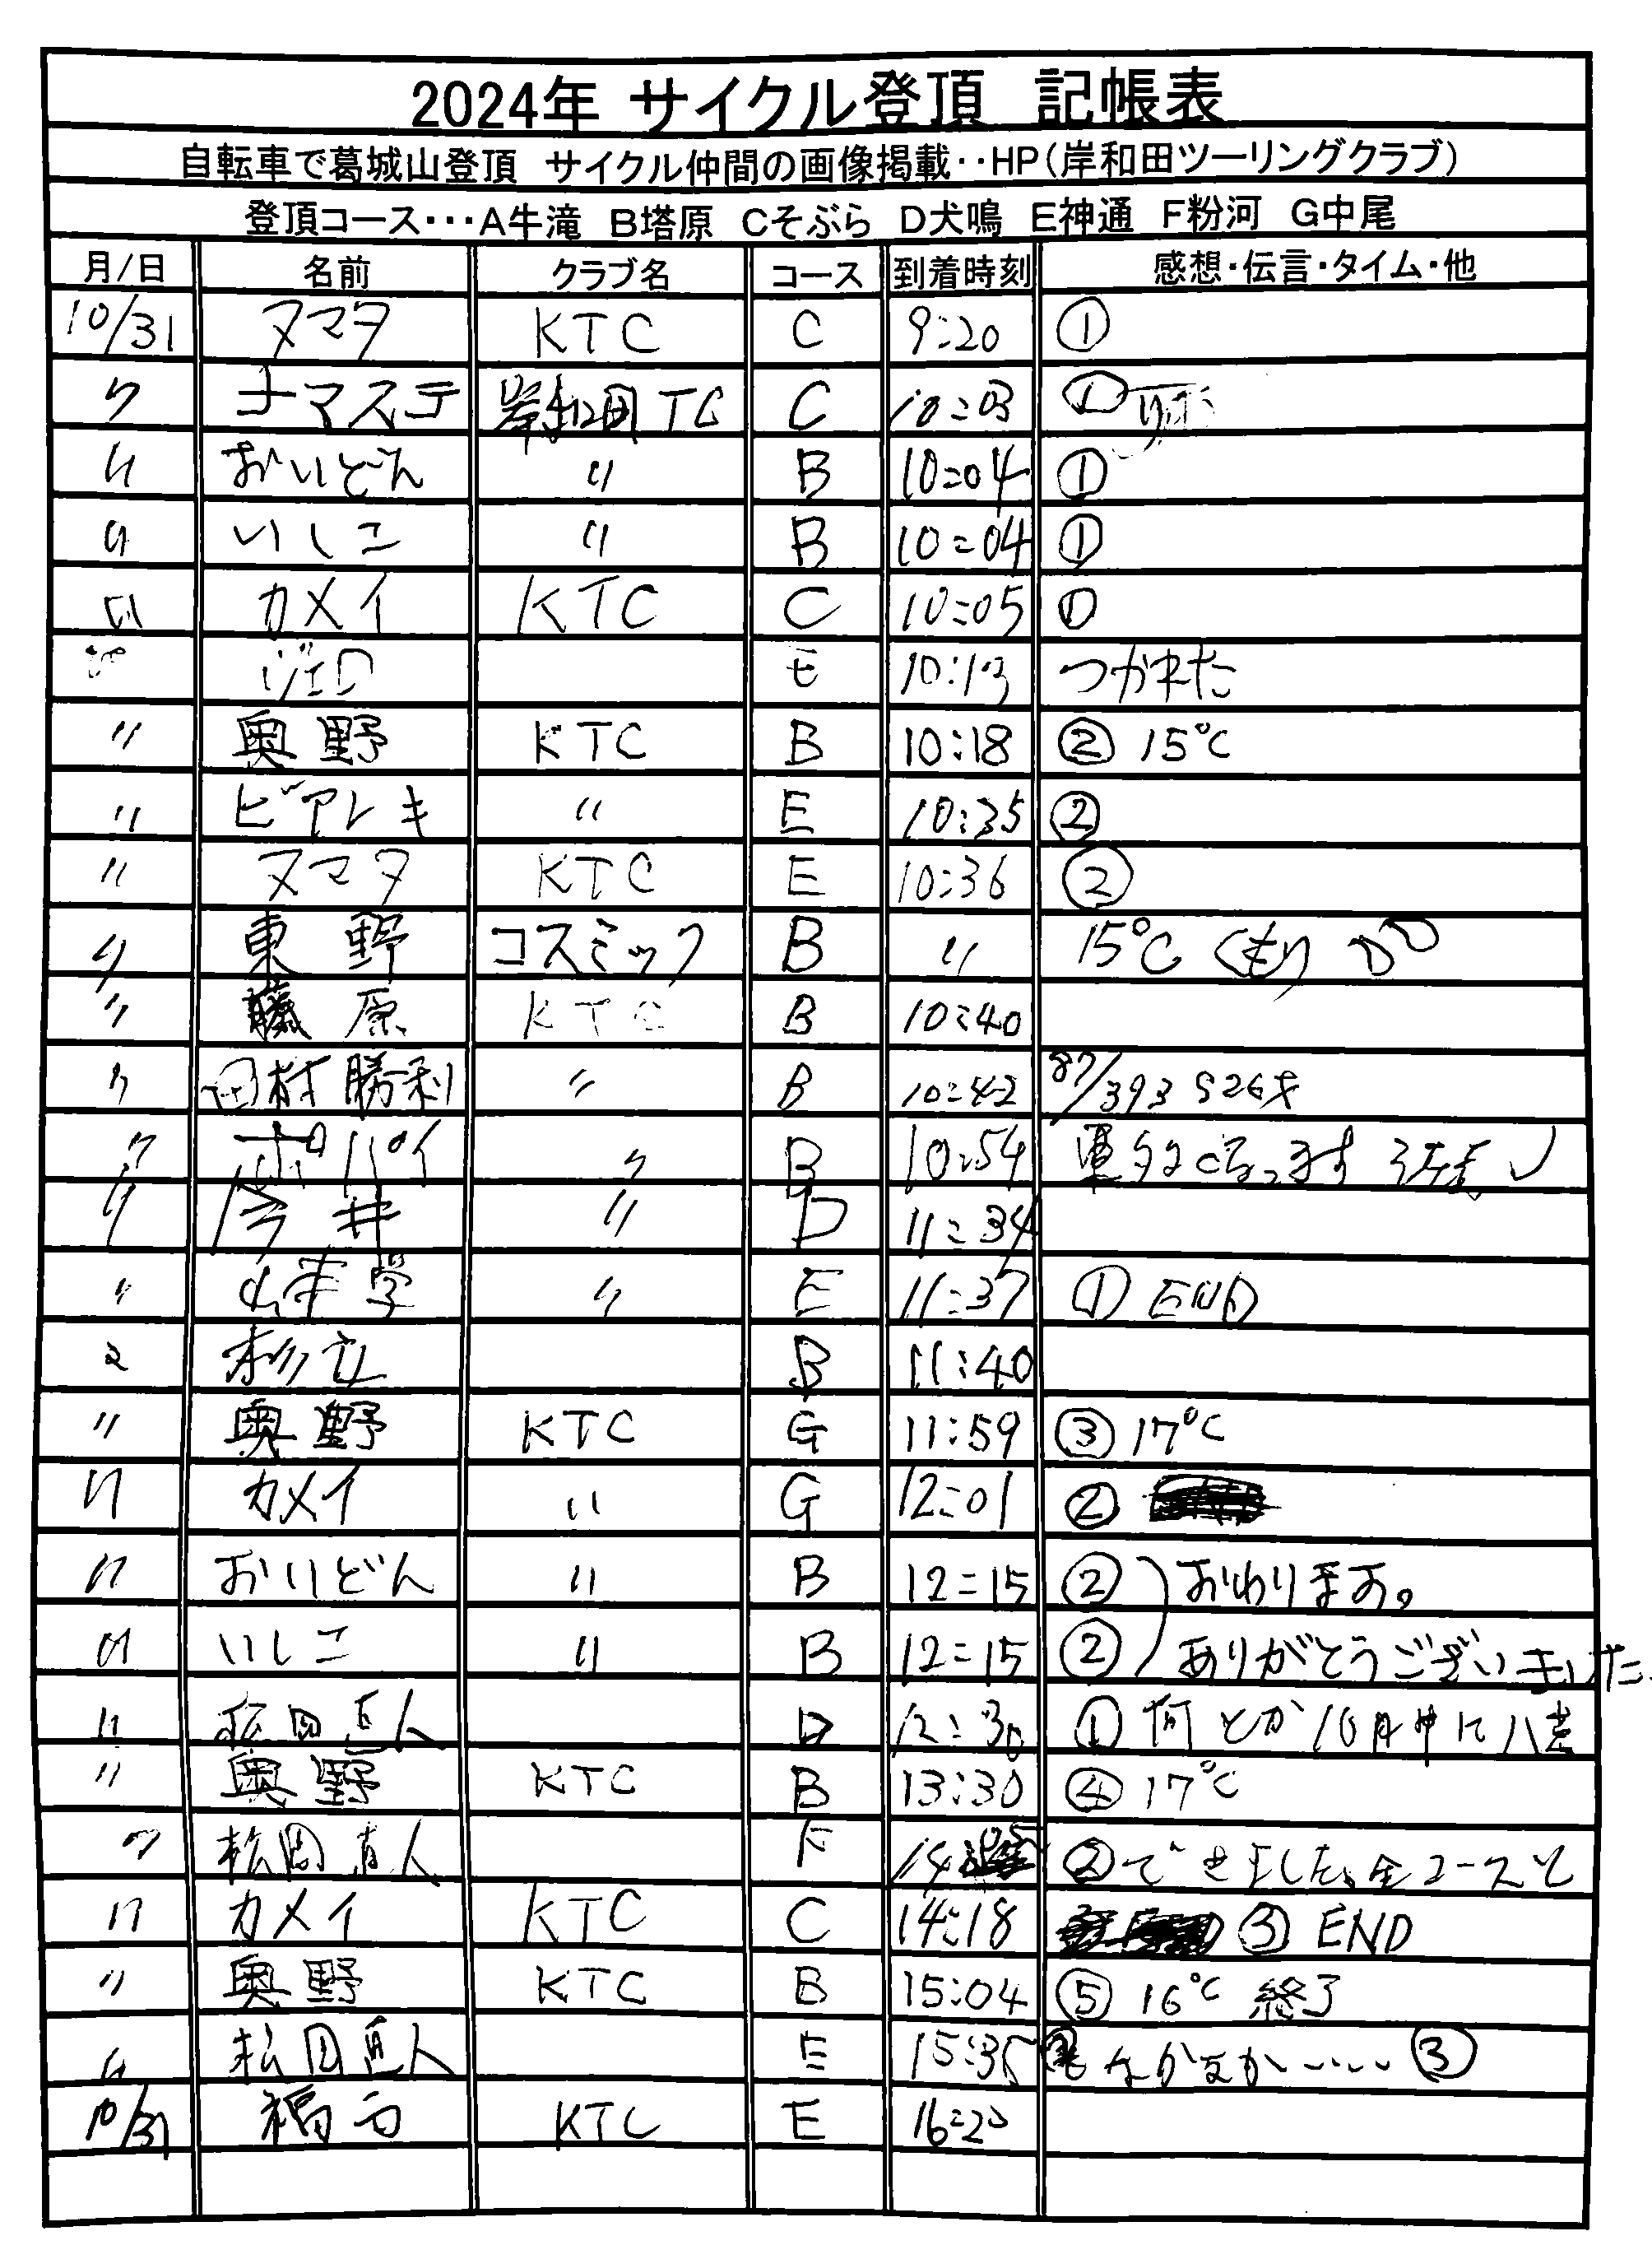 2024年 サイクル登頂 記帳表
自転車で葛城山登頂 サイクル仲間の画像掲載‥HP(岸和田ツーリングクラブ)
登頂コース･･･A牛滝 B塔原 Cそぶら D犬鳴 E神通 F粉河 G中尾
月/日 名前 クラブ名 コース 到着時刻 感想・伝言・タイム・他
10/31 ヌマタ KTC C 9:20 ①
〃 ナマステ 岸和田TC C 10:03 ①
〃 おいどん 〃 B 10:04 ①
〃 いしこ 〃 B 10:04 ①
〃 カメイ KTC C 10:05 ①
〃 ジェロ E 10:13 つかれた
〃 奥野 KTC B 10:18 ② 15℃
〃 ビアレキ 〃 E 10:35 ②
〃 ヌマタ KTC E 10:36 ②
〃 東野 コスミック B 〃 15℃ くもり
〃 藤原 KTC B 10:40
〃 田村勝利 〃 B 10:42 87/393 526才
〃 ポパイ 〃 B 10:54
〃 今井 〃 D 11:34
〃 〃 E 11:37 ① END
〃 杉立 B 11:40
〃 奥野 KTC G 11:59 ③ 17℃
〃 カメイ 〃 G 12:01 ②
〃 おいどん 〃 B 12:15 ② おわります。
〃 いしこ 〃 B 12:15 ② ありがとうございました
〃 松田直人 D 12:30 ① 何とか10月中に
〃 奥野 KTC B 13:30 ④ 17℃
〃 松田直人 F 14: ② できました、全コース
〃 カメイ KTC C 14:18 ③ END
〃 奥野 KTC B 15:04 ⑤ 16℃ 終了
〃 松田直人 E 15:35 なかなか‥‥ ③
10/31 KTC E 16:20